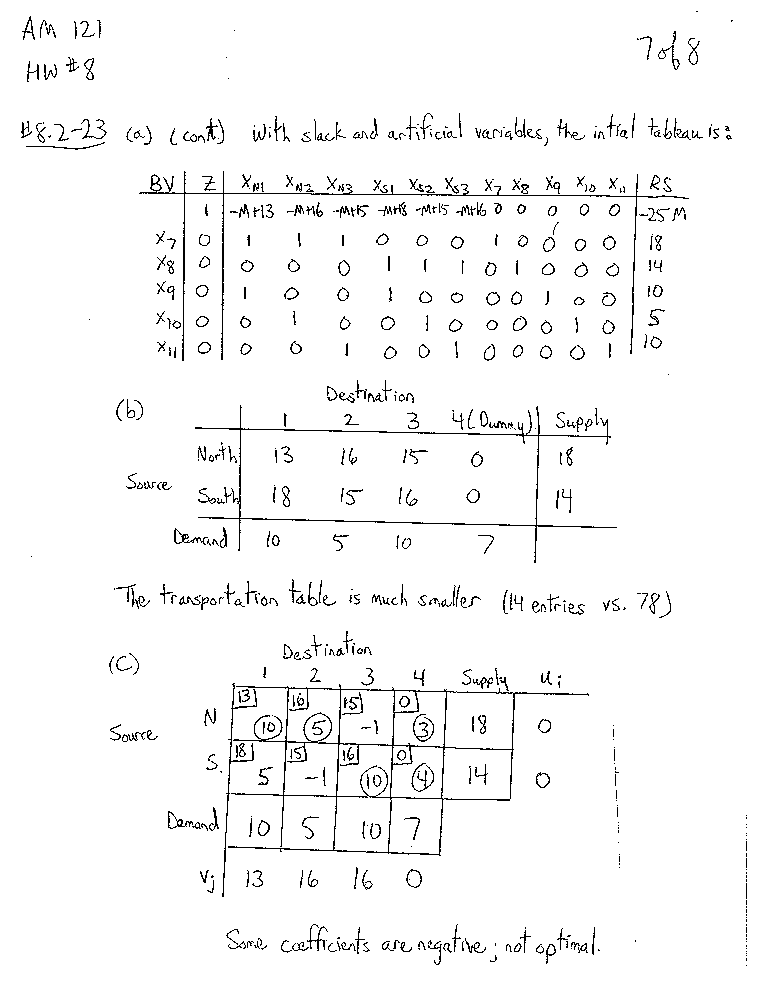 AM 121
7 of 8
HW #8
#8.2-23 (a) (cont) With slack and artificial variables, the intial tableau is:
BV Z XN1 XN2 XN3 XS1 XS2 XS3 X7 X8 X9 X10 X11 RS
1 -M+13 -M+16 -M+15 -M+18 -M+15 -M+16 0 0 0 0 0 -25M
X7 0 1 1 1 0 0 0 1 0 0 0 0 18
X8 0 0 0 0 1 1 1 0 1 0 0 0 14
X9 0 1 0 0 1 0 0 0 0 1 0 0 10
X10 0 0 1 0 0 1 0 0 0 0 1 0 5
X11 0 0 0 1 0 0 1 0 0 0 0 1 10
Destination
(b)
1 2 3 4 (Dummy) Supply
North 13 16 15 0 18
Source
South 18 15 16 0 14
Demand 10 5 10 7
The transportation table is much smaller (14 entries vs. 78)
Destination
(c)
1 2 3 4 Supply ui
13 16 15 0
N 10 5 -1 3 18 0
Source
18 15 16 0
S. 5 -1 10 4 14 0
Demand 10 5 10 7
vj 13 16 16 0
Some coefficients are negative; not optimal.